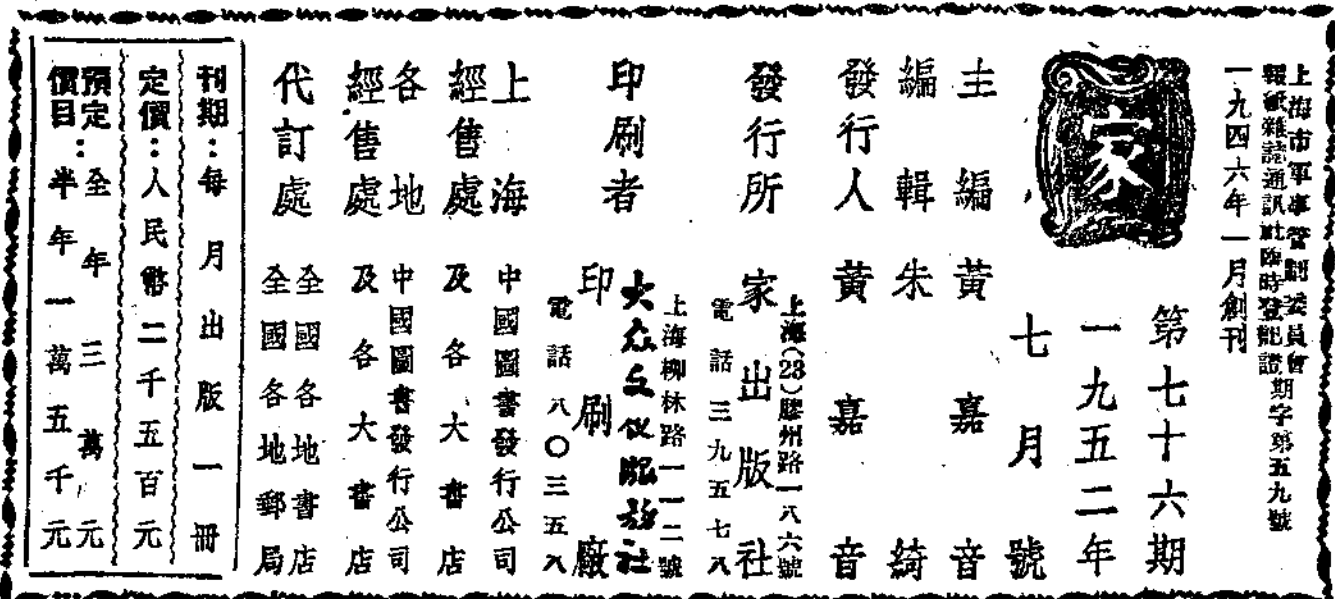 上海市軍事管制委員會
報紙雜誌通訊社臨時登記證期字第五九號
一九四六年一月創刊
家
第七十六期
一九五二年
七月號
主編 黃嘉音
編輯 朱綺
發行人 黃嘉音
發行所 家出版社
上海(23)膠州路一八六號
電話 三九五七八
印刷者
大众文化服務社
印刷廠
上海柳林路一一二號
電話 八〇三五八
上海經售處 中國圖書發行公司及各大書店
各地經售處 中國圖書發行公司及各大書店
代訂處 全國各地書店
全國各地郵局
刊期:每月出版一冊
定價:人民幣二千五百元
預定價目:全年三萬元
半年一萬五千元